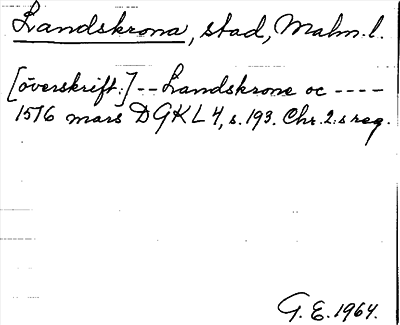 Landskrona, stad, Malm. l.
[överskrift:] -- Landskrone oc ----
1576 mars DGKL 4, s. 193. Chr. 2:s reg.
G. E. 1964.